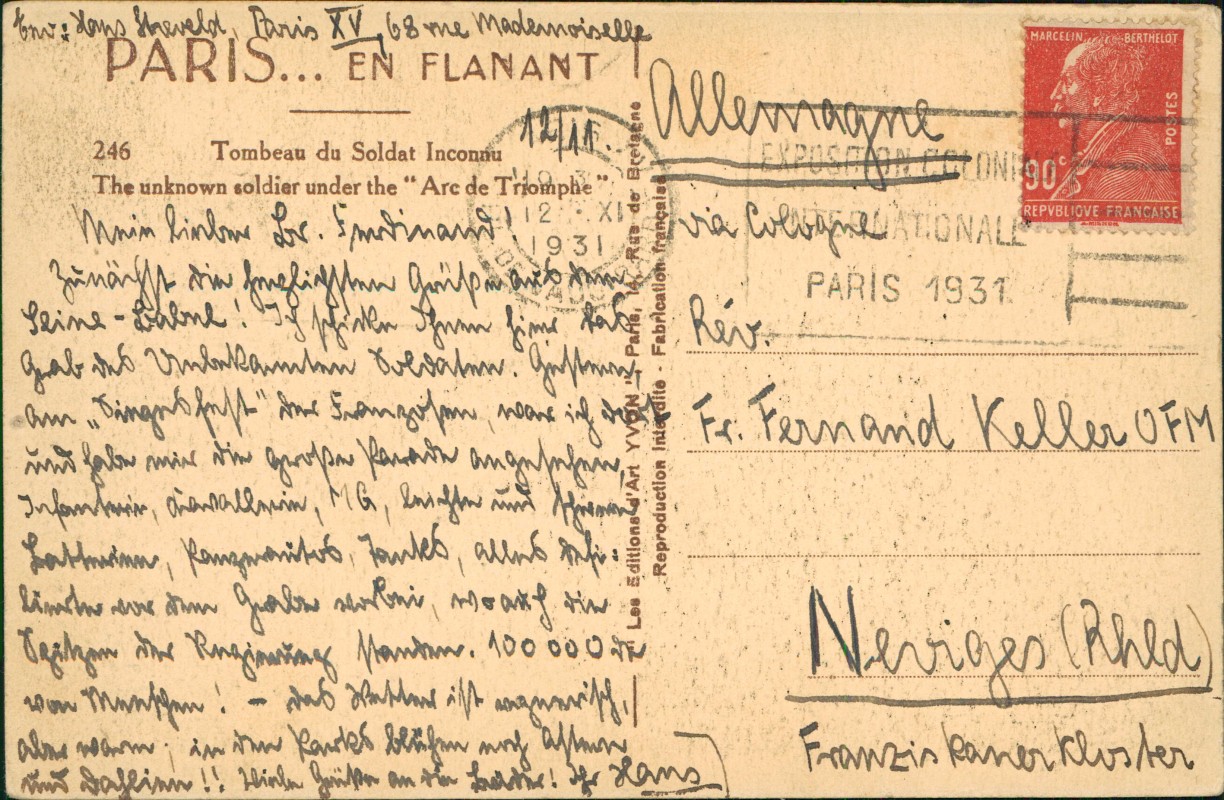 Env: Hans Streveld, Paris XV, 68 rue Mademoiselle
PARIS... EN FLANANT
246 Tombeau du Soldat Inconnu
The unknown soldier under the "Arc de Triomphe"
12/11.
Mein lieber Br. Ferdinand!
Zunächst die herzlichsten Grüße aus dem
Seine-Babel! Ich schicke Ihnen hier das
Grab des Unbekannten Soldaten. Gestern,
am „Siegesfest" der Franzosen, war ich dort
und habe mir die große Parade angesehen,
Infanterie, Kavallerie, MG, leichte und schwere
Batterien, Panzerautos, Tanks, alles defi-
lierte vor dem Grabe vorbei, wo auch die
Spitzen der Regierung standen. 100000de
von Menschen! – das Wetter ist regnerisch,
aber warm; in den Parks blühen noch Astern
und Dahlien!! Viele Grüße an die Brüder! Ihr Hans
Les Editions d'Art "YVON" Paris, Rue de Bretagne
Reproduction interdite - Fabrication française
19 3
12 XI
1931
EXPOSITION COLONIALE
INTERNATIONALE
PARIS 1931
MARCELIN BERTHELOT
POSTES
90c
REPVBLIQVE FRANÇAISE
Allemagne
via Cologne
Rév.
Fr. Fernand Keller OFM
Neviges (Rhld)
Franziskanerkloster